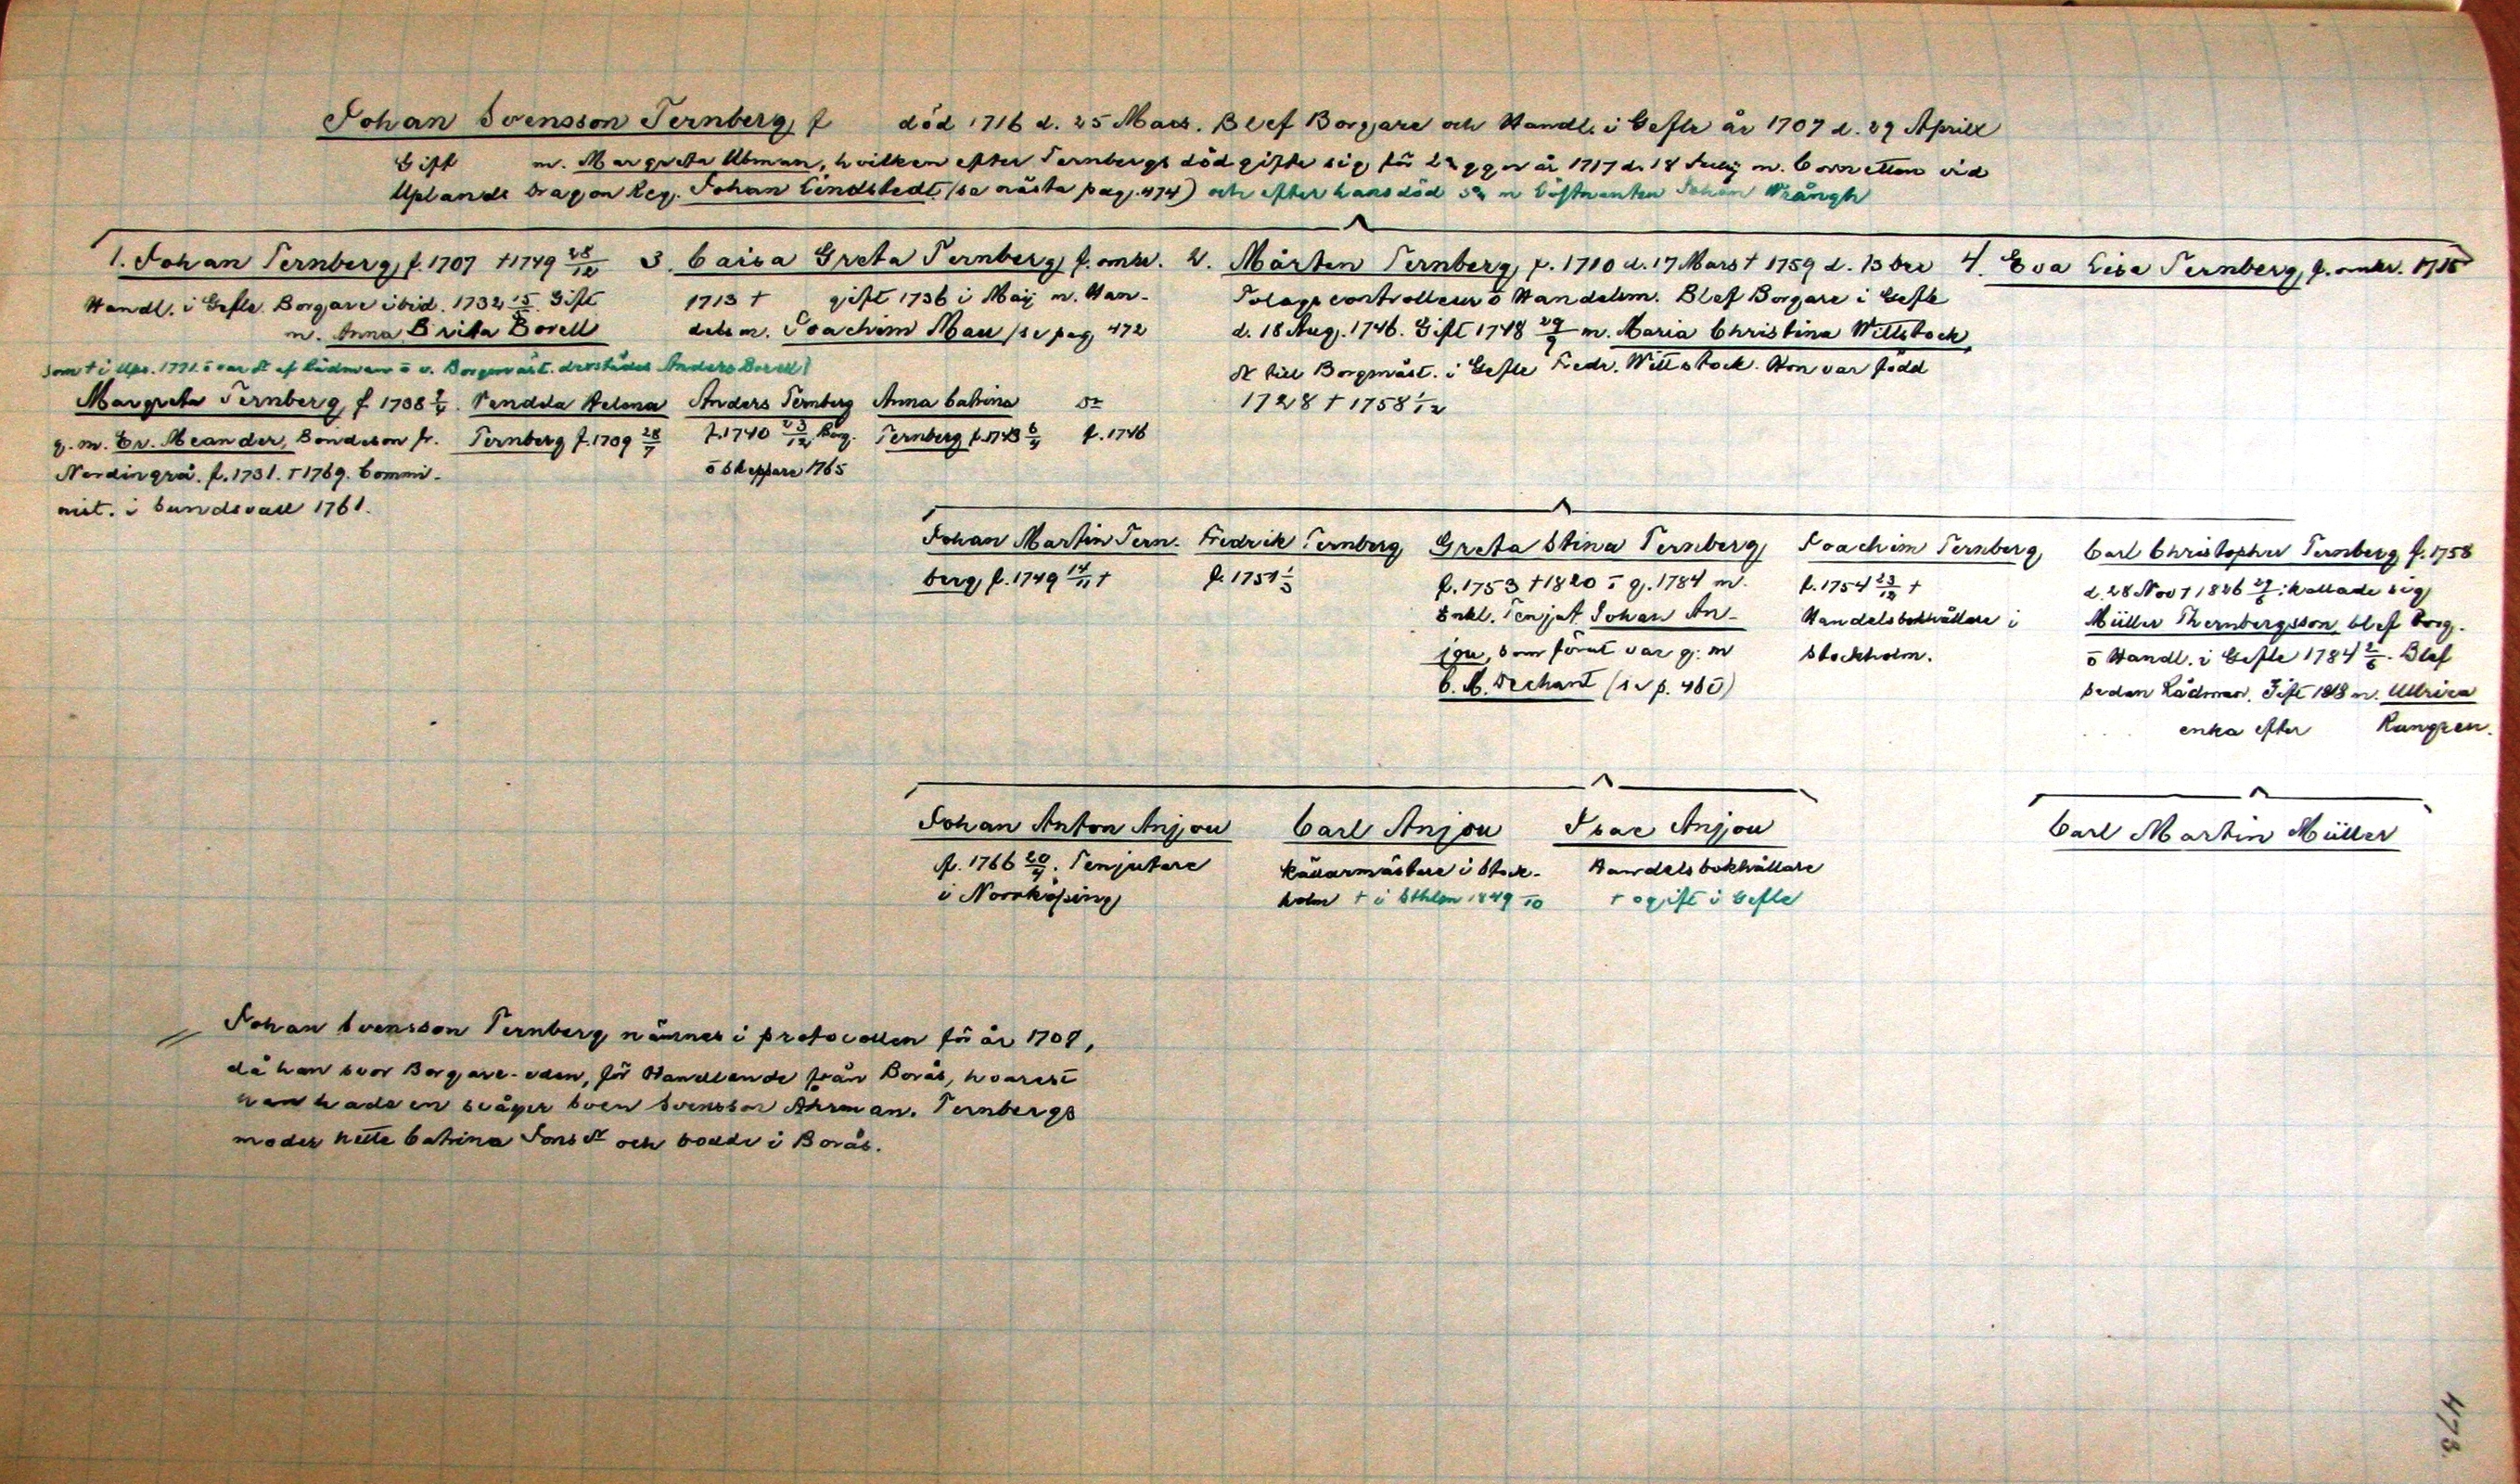 Johan Svensson Ternberg, f död 1716 d. 25 Mars. Blef Borgare och Handl. i Gefle år 1707 d. 29 Aprill
Gift m. Margreta Ubman, hvilken efter Ternbergs död gifte sig för 2a ggn år 1717 d. 18 Julij m. Cornetten vid
Uplands Dragon Reg. Johan Lindstedt (se nästa pag. 474) och efter hans död 3a m Löjtnanten Johan Wrångh
1. Johan Ternberg, f. 1707 †1749 28/12
Handl. i Gefle. Borgare ibid. 1732 15/5. Gift
m. Anna Brita Borell
som † i Apr. 1771. o var Dr af Rådman o v. Borgmäst. derstädes Anders Borell
3. Caisa Greta Ternberg, f. omkr.
1713 † gift 1736 i Maij m. Han-
delsm. Joachim Mau (se pag. 472
2. Mårten Ternberg, f. 1710 d. 17 Mars † 1759 d. 13 Dec
Tolags controlleur o Handelsm. Blef Borgare i Gefle
d. 18 Aug. 1746. Gift 1748 29/9 m. Maria Christina Wittstock,
Dr till Borgmäst. i Gefle Fredr. Wittstock. Hon var född
1728 † 1758 1/12
4. Eva Lisa Ternberg, f. omkr. 1715
Margreta Ternberg, f 1738
g. m. Er. Meander, Bondeson fr.
Nordingrå. f. 1731. †1769. Commi-
nist. i Sundsvall 1761.
Vendela Helena
Ternberg f. 1739 28/7
Anders Ternberg
f. 1740 23/12 Borg.
o Skeppare 1765
Anna Catrina
Ternberg f. 1743 6/4
Dr
f. 1746
Johan Martin Tern-
berg, f. 1749 14/11 †
Fredrik Ternberg
f. 1751 1/3
Greta Stina Ternberg,
f. 1753 †1820 g. 1784 m.
Enkl. Tenjut. Johan An-
jou, som förut var g. m
C. M. Dechant (se p. 460)
Joachim Ternberg,
f. 1754 23/12 †
Handelsbokhållare i
Stockholm.
Carl Christopher Ternberg, f. 1758
d. 28 Nov † 1826 29/6: kallade sig
Müller Thernbergsson, blef Borg.
o Handl. i Gefle 1784 2/6. Blef
sedan Rådman. Gift 1818 m. Ullrica
enka efter Rungren.
Johan Anton Anjou
f. 1766 20/4. Tenjutare
i Norrköping
Carl Anjou
Källarmästare i Stock-
holm † i Sthlm 1849 /10
Isac Anjou
Handelsbokhållare
† ogift i Gefle
Carl Martin Müller
Johan Svensson Ternberg, nämnes i protocollen för år 1707,
då han svor Borgare-eden, för Handlande från Borås, hvarest
han hade en svåger Sven Svensson Åhrman. Ternbergs
moder hette Catrina Jons Dr och bodde i Borås.
473.